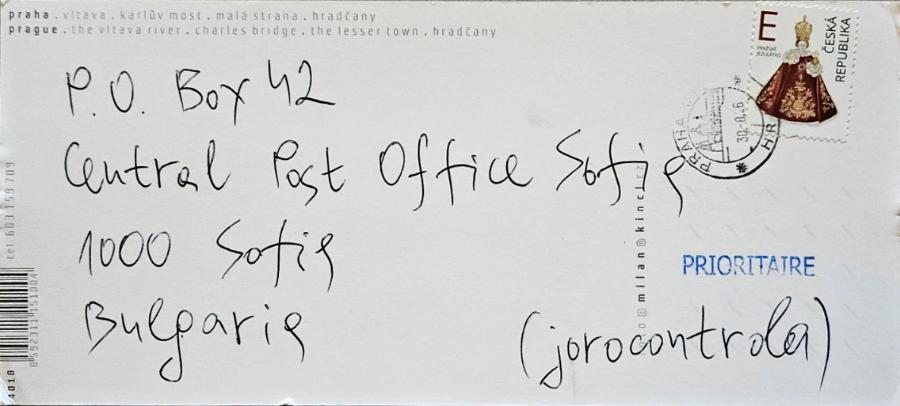 praha . vltava . karlův most . malá strana . hradčany
prague . the vltava river . charles bridge . the lesser town . hradčany
E
PRAŽSKÉ
JEZULÁTKO
ČESKÁ
REPUBLIKA
PRAHA
HR
P.O. Box 42
Central Post Office Sofia
1000 Sofia
Bulgaria
(jorocontrola)
PRIORITAIRE
milan@kincl.cz
tel 603 159 709
4018